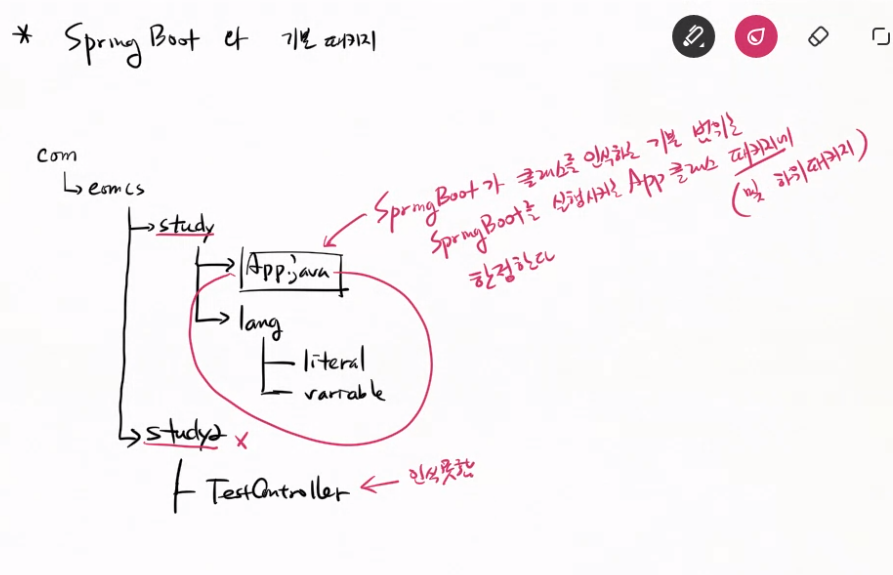 * Spring Boot 와 기본 패키지
com
eomcs
study
App.java
lang
literal
variable
study2 x
TestController
SpringBoot가 클래스를 인식하는 기본 범위는
SpringBoot를 실행시키는 App 클래스 패키지에
(및 하위패키지)
한정한다
인식못함